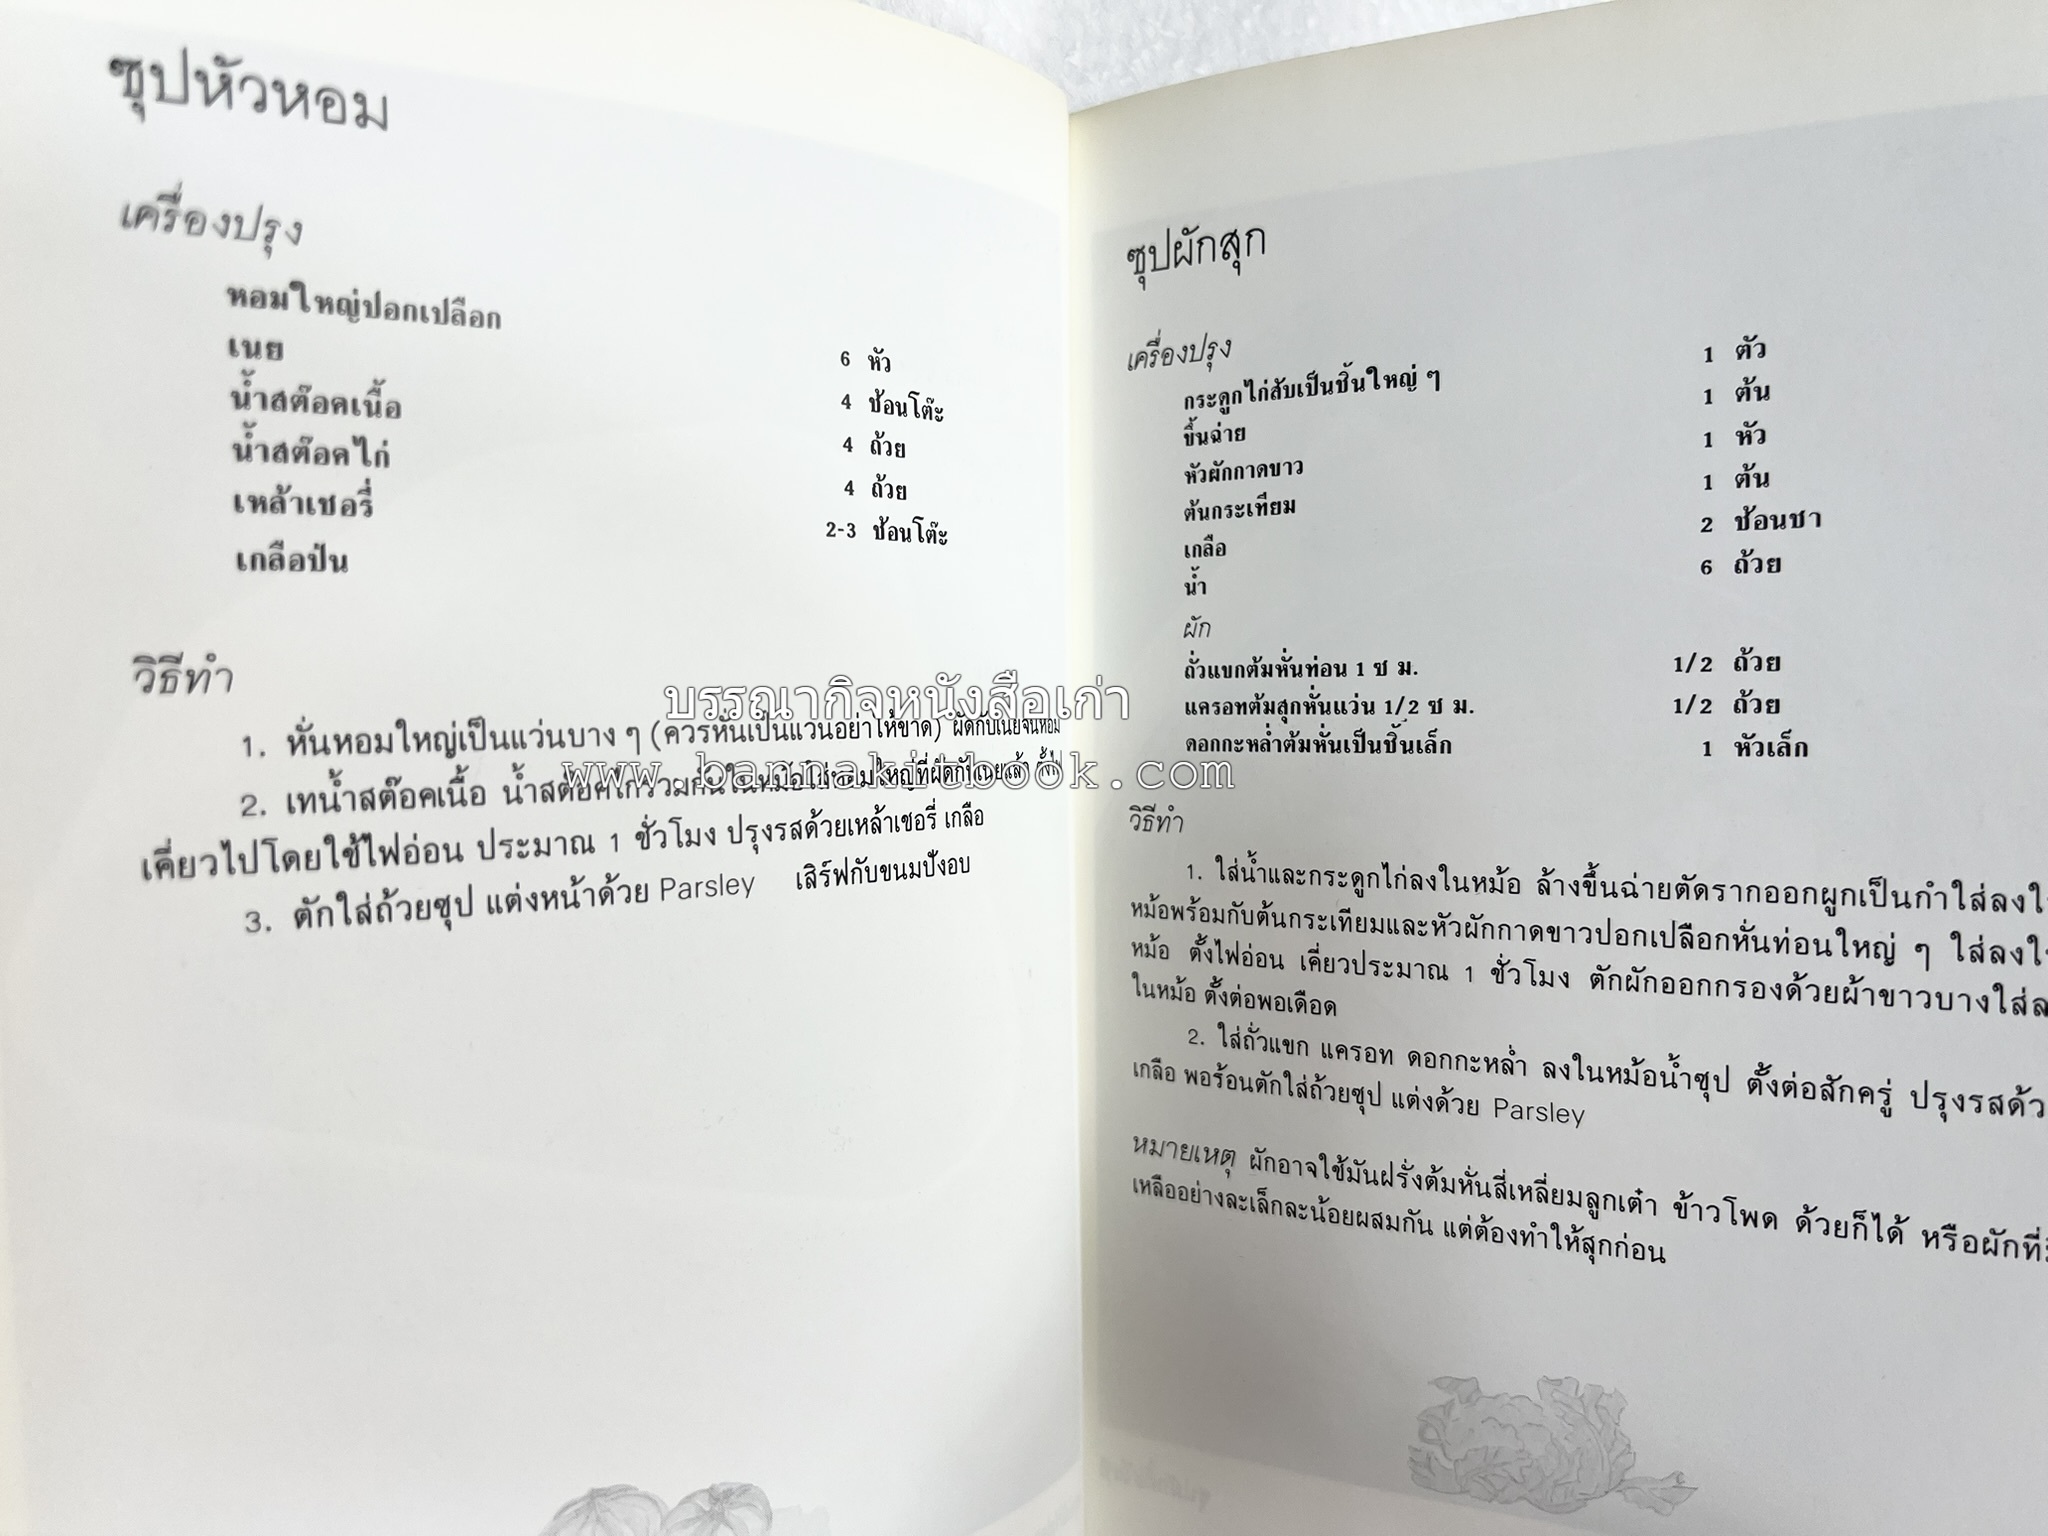 ซุปหัวหอม
เครื่องปรุง
หอมใหญ่ปอกเปลือก 6 หัว
เนย 4 ช้อนโต๊ะ
น้ำสต๊อคเนื้อ 4 ถ้วย
น้ำสต๊อคไก่ 4 ถ้วย
เหล้าเชอรี่ 2-3 ช้อนโต๊ะ
เกลือป่น
วิธีทำ
1. หั่นหอมใหญ่เป็นแว่นบาง ๆ (ควรหั่นเป็นแว่นอย่าให้ขาด) ผัดกับเนยจนหอม
2. เทน้ำสต๊อคเนื้อ น้ำสต๊อคไก่รวมกันในหม้อใส่หอมใหญ่ที่ผัดกับเนยแล้ว
เคี่ยวไปโดยใช้ไฟอ่อน ประมาณ 1 ชั่วโมง ปรุงรสด้วยเหล้าเชอรี่ เกลือ
3. ตักใส่ถ้วยซุป แต่งหน้าด้วย Parsley เสิร์ฟกับขนมปังอบ
บรรณากิจหนังสือเก่า
www.bannakitbook.com
ซุปผักสุก
เครื่องปรุง
กระดูกไก่สับเป็นชิ้นใหญ่ ๆ 1 ตัว
ขึ้นฉ่าย 1 ต้น
หัวผักกาดขาว 1 หัว
ต้นกระเทียม 1 ต้น
เกลือ 2 ช้อนชา
น้ำ 6 ถ้วย
ผัก
ถั่วแขกต้มหั่นท่อน 1 ซ ม. 1/2 ถ้วย
แครอทต้มสุกหั่นแว่น 1/2 ซ ม. 1/2 ถ้วย
ดอกกะหล่ำต้มหั่นเป็นชิ้นเล็ก 1 หัวเล็ก
วิธีทำ
1. ใส่น้ำและกระดูกไก่ลงในหม้อ ล้างขึ้นฉ่ายตัดรากออกผูกเป็นกำใส่ลงใน
หม้อพร้อมกับต้นกระเทียมและหัวผักกาดขาวปอกเปลือกหั่นท่อนใหญ่ ๆ ใส่ลงใน
หม้อ ตั้งไฟอ่อน เคี่ยวประมาณ 1 ชั่วโมง ตักผักออกกรองด้วยผ้าขาวบางใส่ล
ในหม้อ ตั้งต่อพอเดือด
2. ใส่ถั่วแขก แครอท ดอกกะหล่ำ ลงในหม้อน้ำซุป ตั้งต่อสักครู่ ปรุงรสด้ว
เกลือ พอร้อนตักใส่ถ้วยซุป แต่งด้วย Parsley
หมายเหตุ ผักอาจใช้มันฝรั่งต้มหั่นสี่เหลี่ยมลูกเต๋า ข้าวโพด ด้วยก็ได้ หรือผักที่
เหลืออย่างละเล็กละน้อยผสมกัน แต่ต้องทำให้สุกก่อน